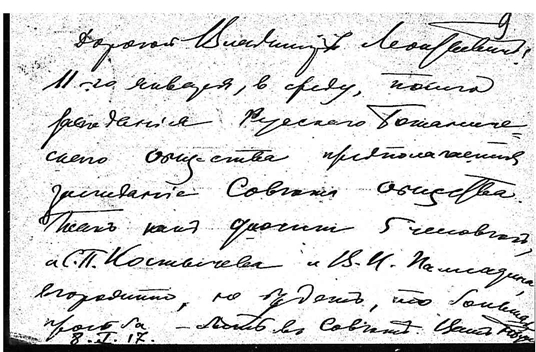 9
Дорогой Владимiръ Леонтьевичъ!
11-го января, в среду, после
заседанiя Русского Ботаниче-
ского Общества предполагается
заседанiе Совета Общества.
Такъ как 5 человекъ,
а С.П. Костычева и В.И. Палладина,
не будетъ, то большая
просьба – быть въ Совете. Вашъ
8.I.17.